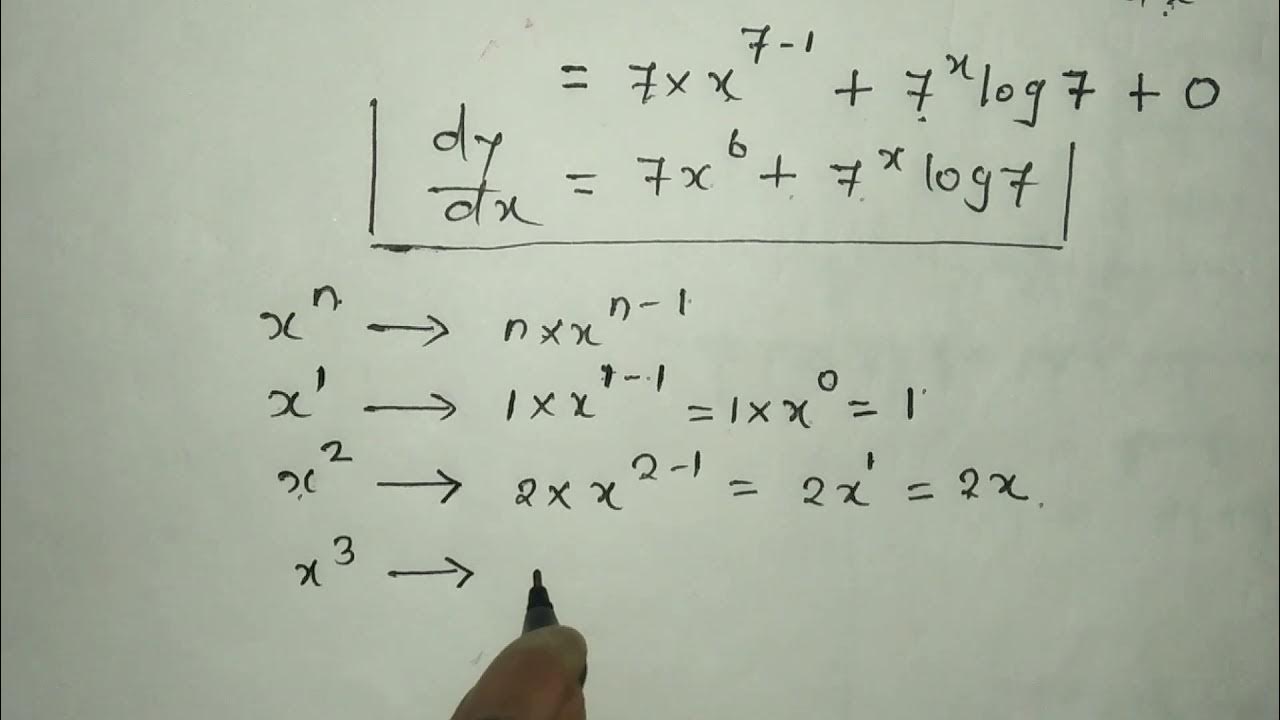 = 7 × x^(7-1) + 7^x log 7 + 0
dy/dx = 7x^6 + 7^x log 7
x^n → n × x^(n-1)
x^1 → 1 × x^(1-1) = 1 × x^0 = 1
x^2 → 2 × x^(2-1) = 2x^1 = 2x.
x^3 →